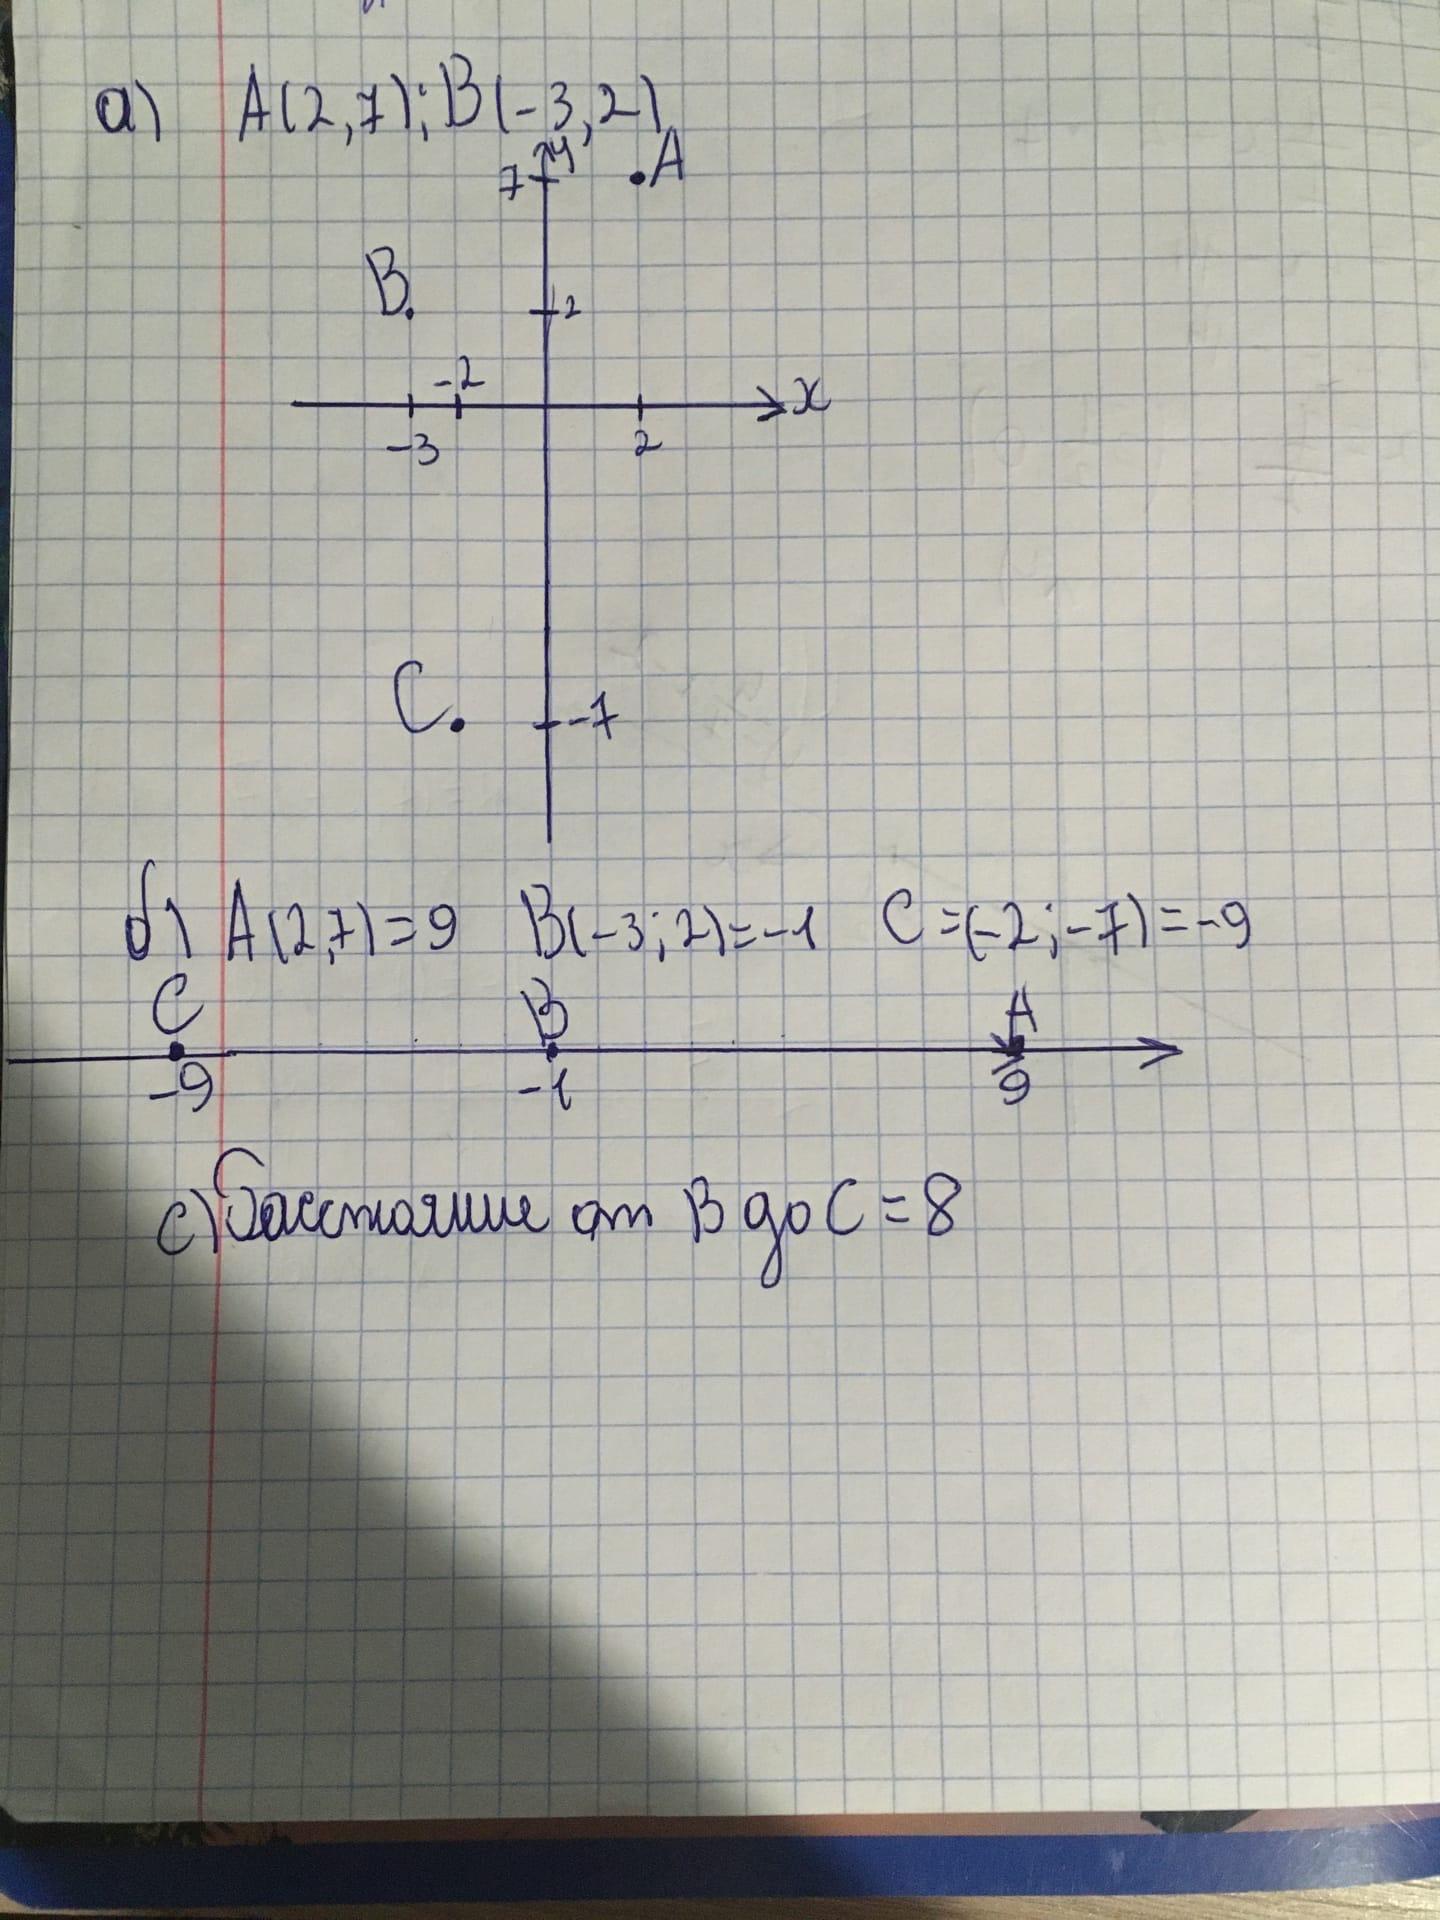 а) A(2,7); B(-3,2)
7 y A
B 2
-2 x
-3 2
C -7
б) A(2,7)=9 B(-3;2)=-1 C=(-2;-7)=-9
C B A
-9 -1 9
c) Расстояние от B до C = 8